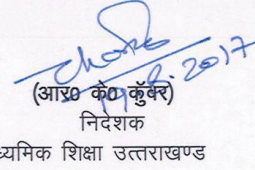 19.8.2017
(आर० के० कुँवर)
निदेशक
ध्यमिक शिक्षा उत्तराखण्ड